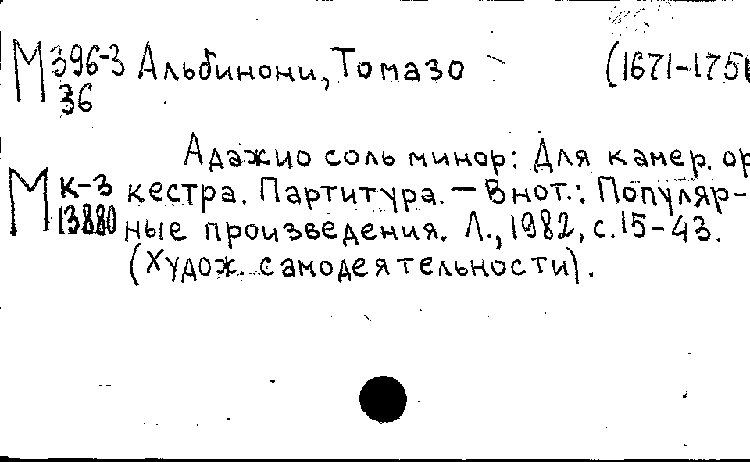 М 396-3 Альбинони, Томазо (1671-1751
36
Адажио соль минор: Для камер. ор
М к-3 кестра. Партитура. — В нот.: Популяр-
13880 ные произведения. Л., 1982, с. 15-43.
(Худож. самодеятельности).